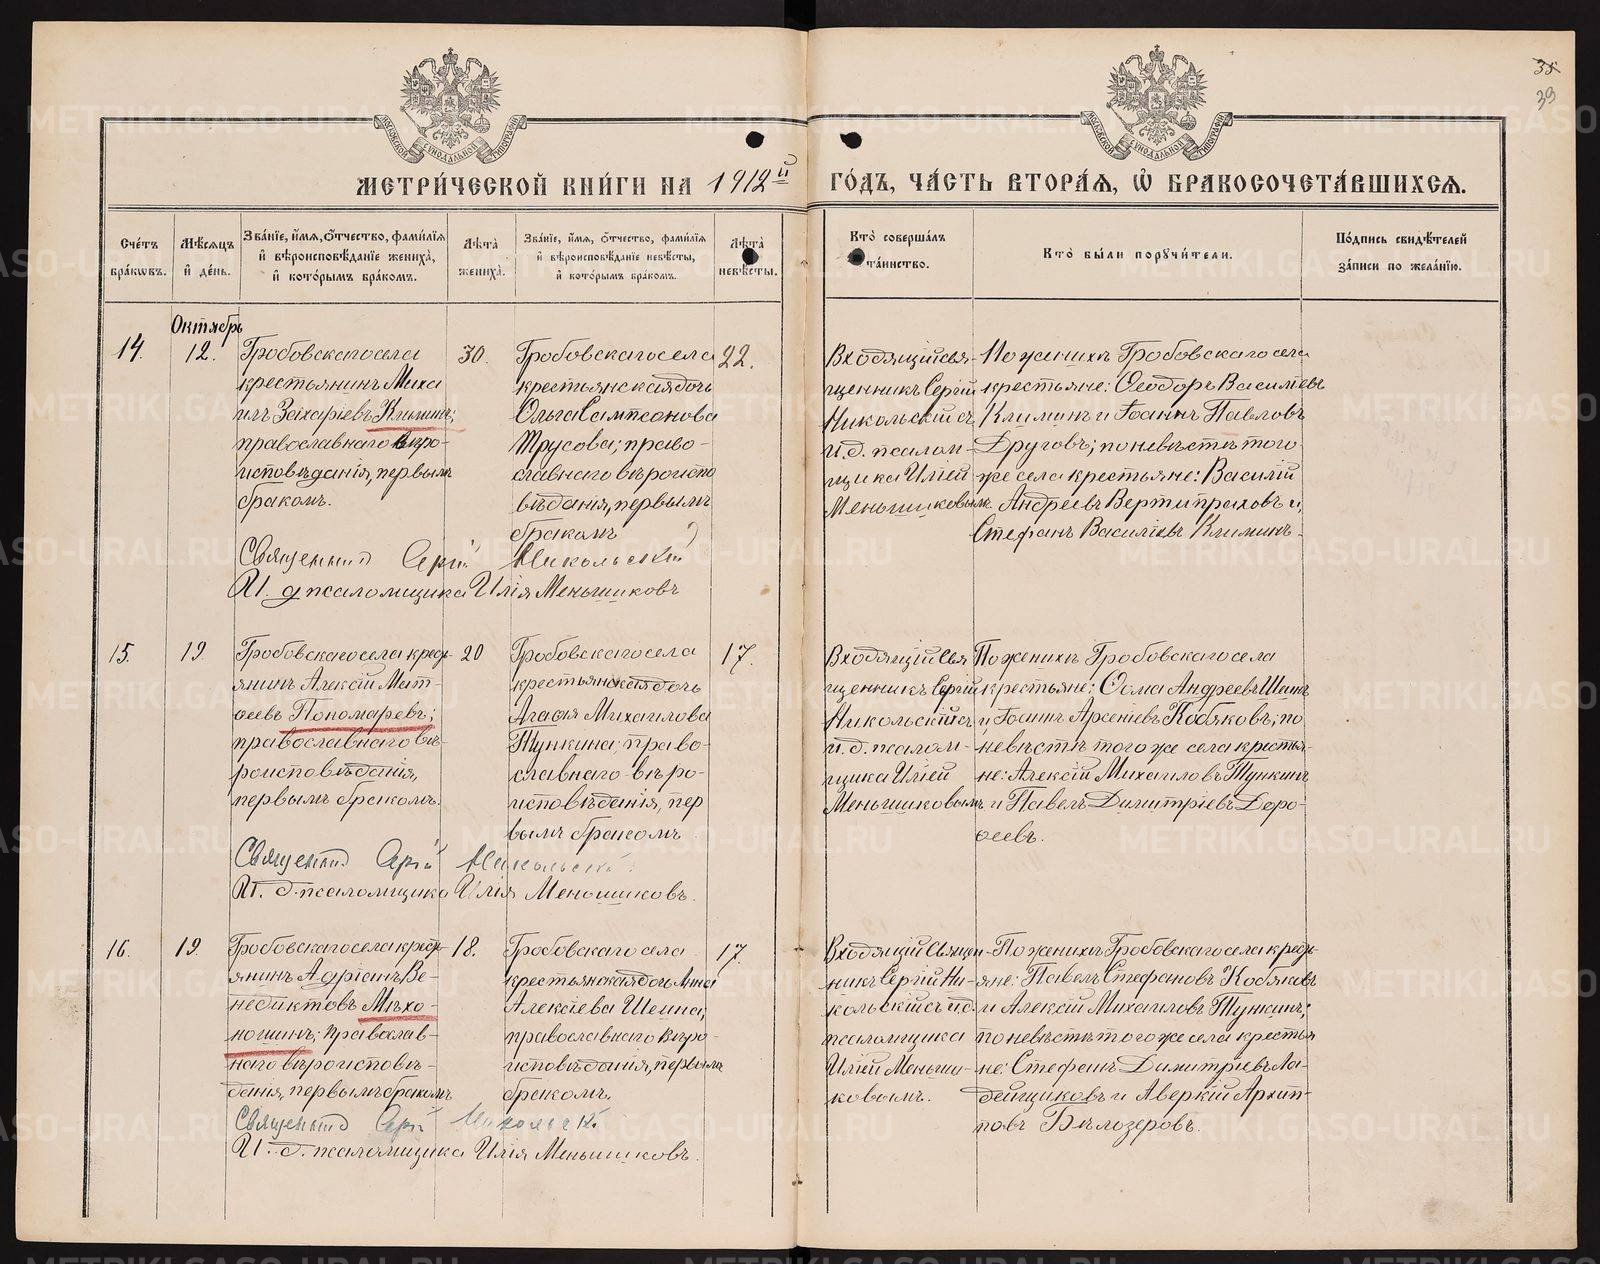 35
39
МЕТРИ́ЧЕСКОЙ КНИ́ГИ НА 1912й ГО́ДЪ, ЧА́СТЬ ВТОРА́Я, Ѡ҆ БРАКОСОЧЕТА́ВШИХСЯ.
Сче́тъ бра́ковъ.
Мѣ́сяцъ и де́нь.
Зва́нїе, и҆́мя, ѻ҆́тчество, фами́лїя и҆ вѣроисповѣ́данїе жениха̀, и҆ кото́рымъ бра́комъ.
Лѣ́та жениха̀.
Зва́нїе, и҆́мя, ѻ҆́тчество, фами́лїя и҆ вѣроисповѣ́данїе невѣ́сты, и҆ кото́рымъ бра́комъ.
Лѣ́та невѣ́сты.
Кто̀ соверша́лъ та́инство.
Кто̀ бы́ли порꙋчи́тели.
По́дпись свидѣ́телей за́писи по жела́нїю.
Октябрь
14.
12.
Гробовскаго села
крестьянинъ Миха
илъ Захаріевъ Климинъ;
православнаго вѣро-
исповѣданія, первымъ
бракомъ.
30.
Гробовскаго села
крестьянская дочь
Ольга Сампсонова
Трусова; право-
славнаго вѣроиспо
вѣданія, первымъ
бракомъ
22.
Входящій свя-
щенникъ Сергій
Никольскій съ
и. д. псалом-
щика Иліей
Меньшиковымъ
По женихѣ Гробовскаго села
крестьяне: Ѳеодоръ Василіевъ
Климинъ и Іоаннъ Павловъ
Друговъ; по невѣстѣ того
же села крестьяне: Василій
Андреевъ Вертипраховъ и,
Стефанъ Василіевъ Климинъ.
Священник Сергій Никольский
И. д псаломщика Илія Меньшиковъ
15.
19
Гробовскаго села крест-
янинъ Алексій Мат-
ѳеевъ Пономаревъ;
православнаго вѣ-
роисповѣданія,
первымъ бракомъ.
20
Гробовскаго села
крестьянская дочь
Агаѳія Михаилова
Тункина; право-
славнаго вѣро-
исповѣданія, пер
вымъ бракомъ
17.
Входящій Свя
щенникъ Сергій
Никольскій съ
и. д. псалом-
щика Иліей
Меньшиковымъ
По женихѣ Гробовскаго села
крестьяне: Ѳома Андреевъ Шеинъ
и Іоаннъ Арсеніевъ Кобяковъ; по
невѣстѣ того же села крестья-
не: Алексій Михаиловъ Тункинъ
и Павелъ Димитріевъ Доро-
ѳеевъ.
Священник Сергій Никольский
И. д. псаломщика Илія Меньшиковъ.
16.
19.
Гробовскаго села крест-
янинъ Адріанъ Ве-
недиктовъ Мѣхо-
ношинъ; православ-
наго вѣроисповѣ-
данія, первымъ бракомъ
18.
Гробовскаго села
крестьянская дочь Анна
Алексіева Шеина;
православнаго вѣро-
исповѣданія, первымъ
бракомъ.
17.
Входящій Священ-
никъ Сергій Ни-
кольскій съ и. д.
псаломщика
Иліей Меньши-
ковымъ.
По женихѣ Гробовскаго села крест-
яне: Павелъ Стефановъ Кобяковъ
и Алексій Михаиловъ Тункинъ;
по невѣстѣ того же села крестья
не: Стефанъ Димитріевъ Ла-
дейщиковъ и Аверкій Архип-
повъ Бѣлозеровъ.
Священник Сергій Никольский
И. д. псаломщика Илія Меньшиковъ.
METRIKI.GASO-URAL.RU